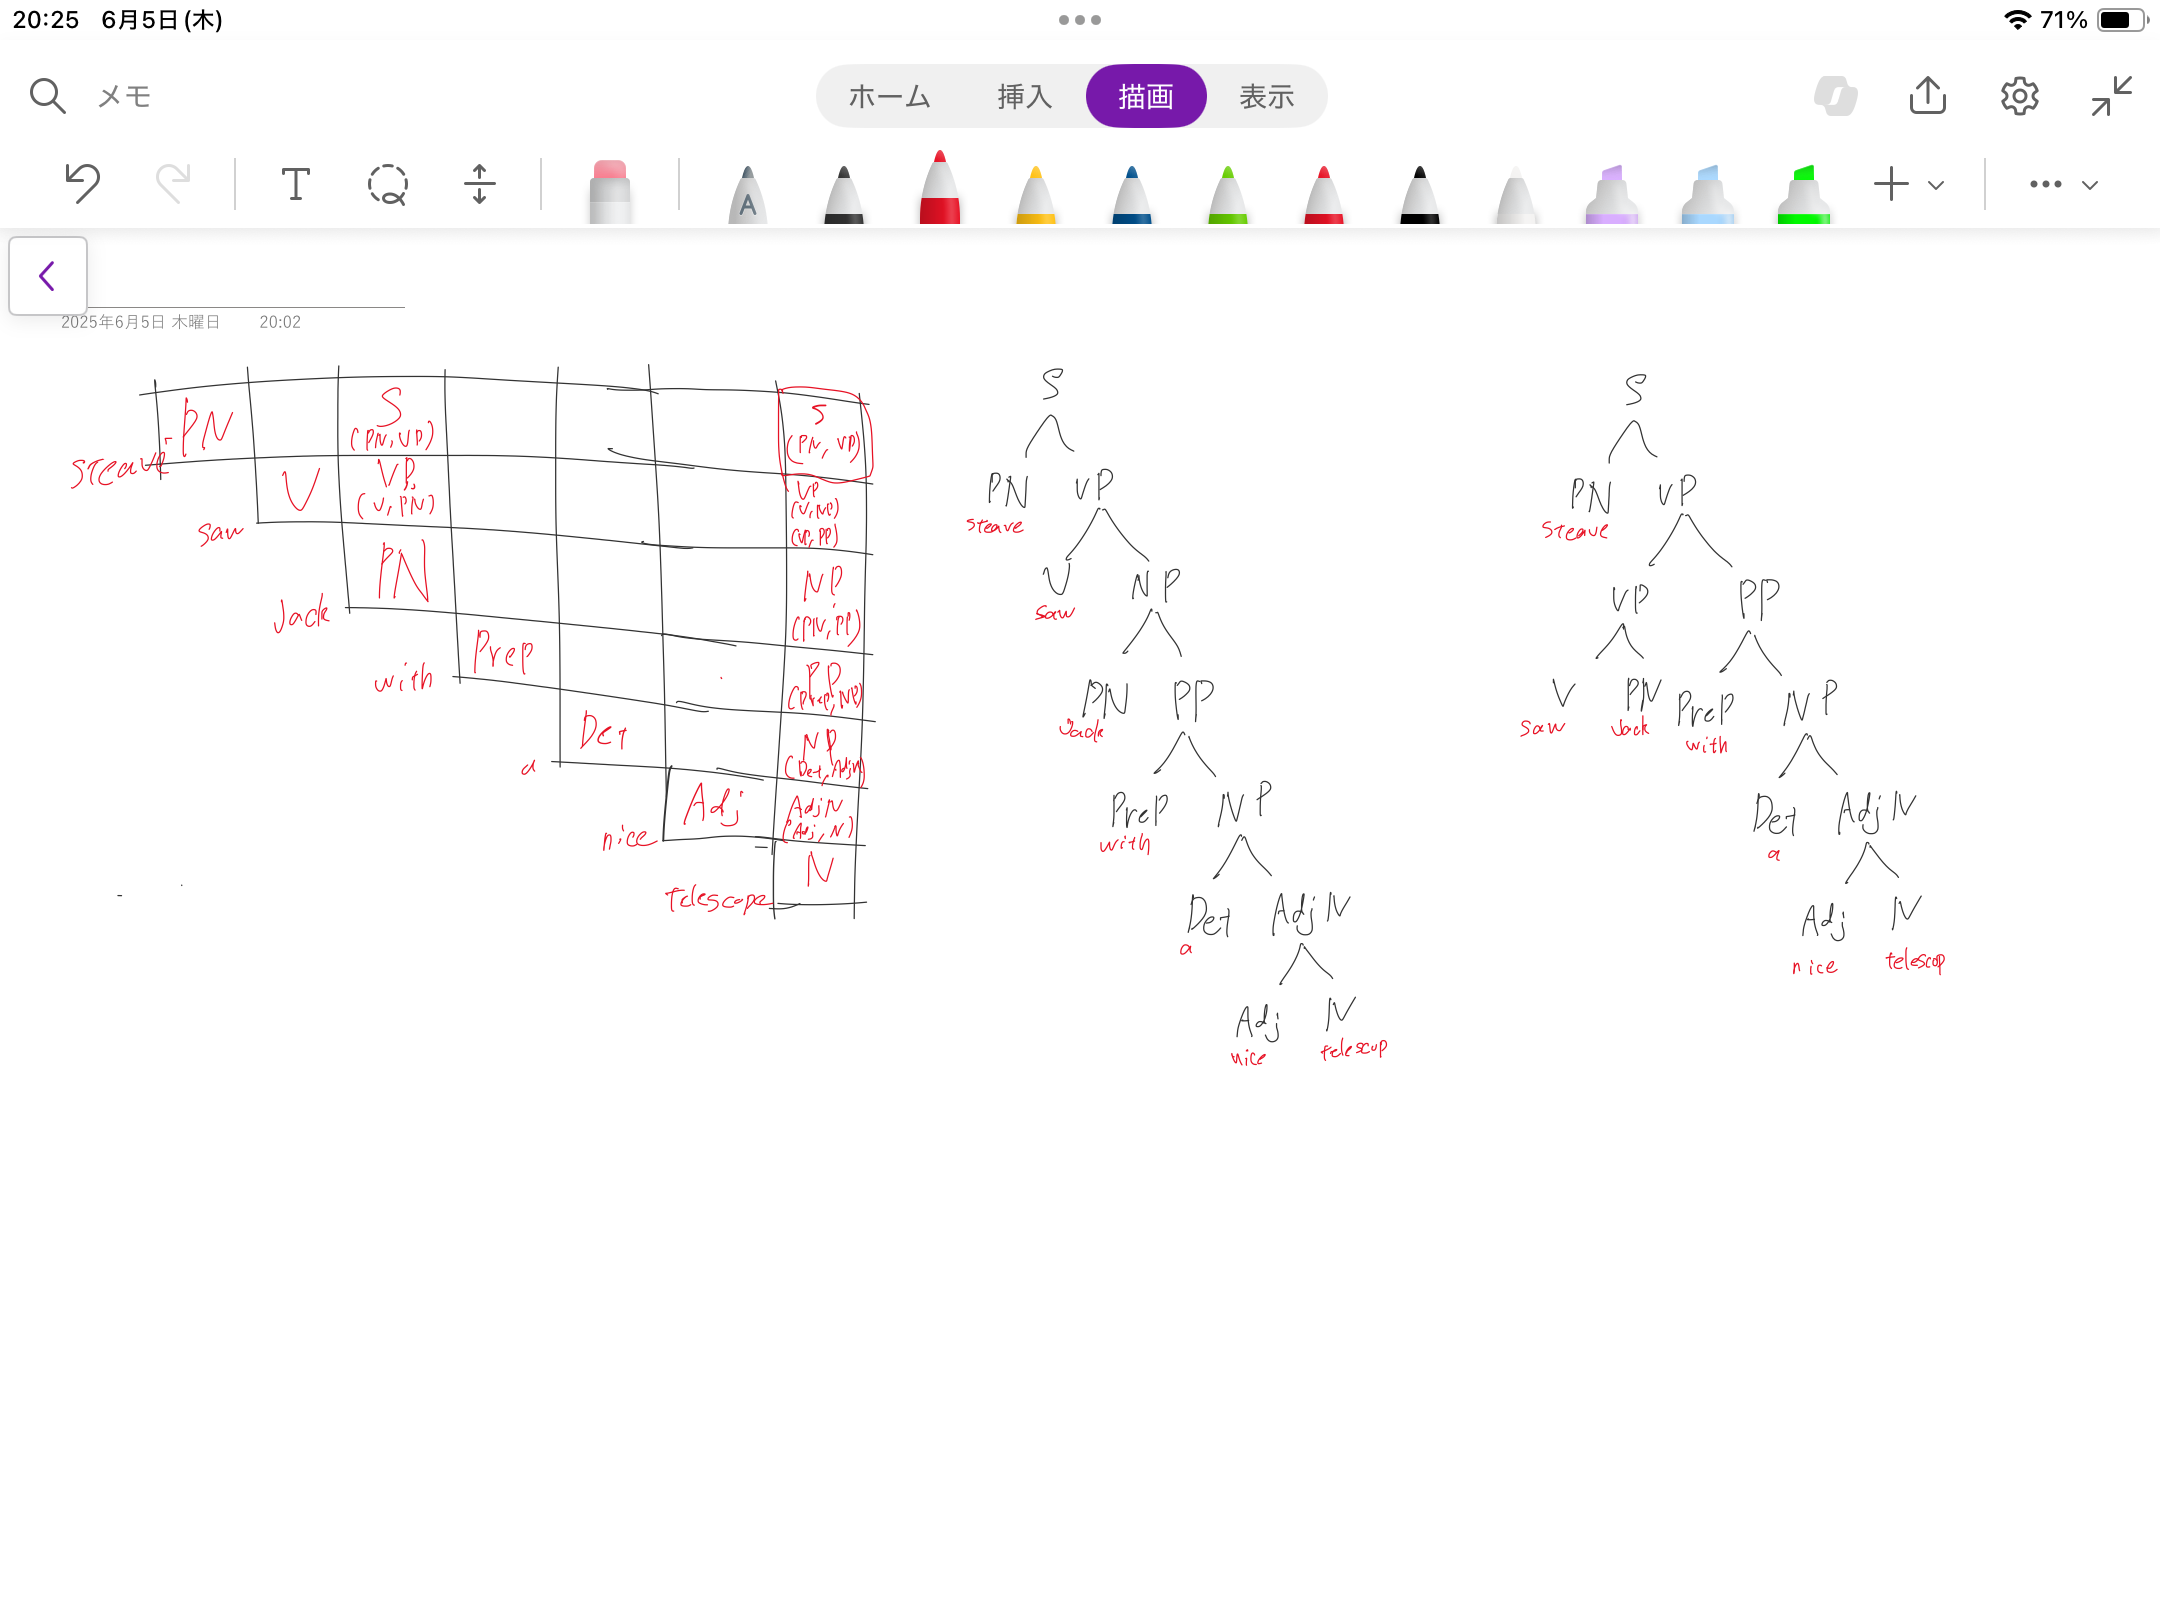 20:25 6月5日(木)
71%
メモ
ホーム 挿入 描画 表示
T
A
2025年6月5日 木曜日 20:02
PN
S
(PN, VP)
S
(PN, VP)
steave
V
VP
(V, PN)
VP
(V, NP)
(VP, PP)
saw
PN
NP
(PN, PP)
Jack
Prep
PP
(Prep, NP)
with
Det
NP
(Det, AdjN)
a
Adj
AdjN
(Adj, N)
nice
N
telescope
S
PN VP
steave
V NP
saw
PN PP
Jack
Prep NP
with
Det AdjN
a
Adj N
nice telescop
S
PN VP
steave
VP PP
V PN Prep NP
saw Jack with
Det AdjN
a
Adj N
nice telescop